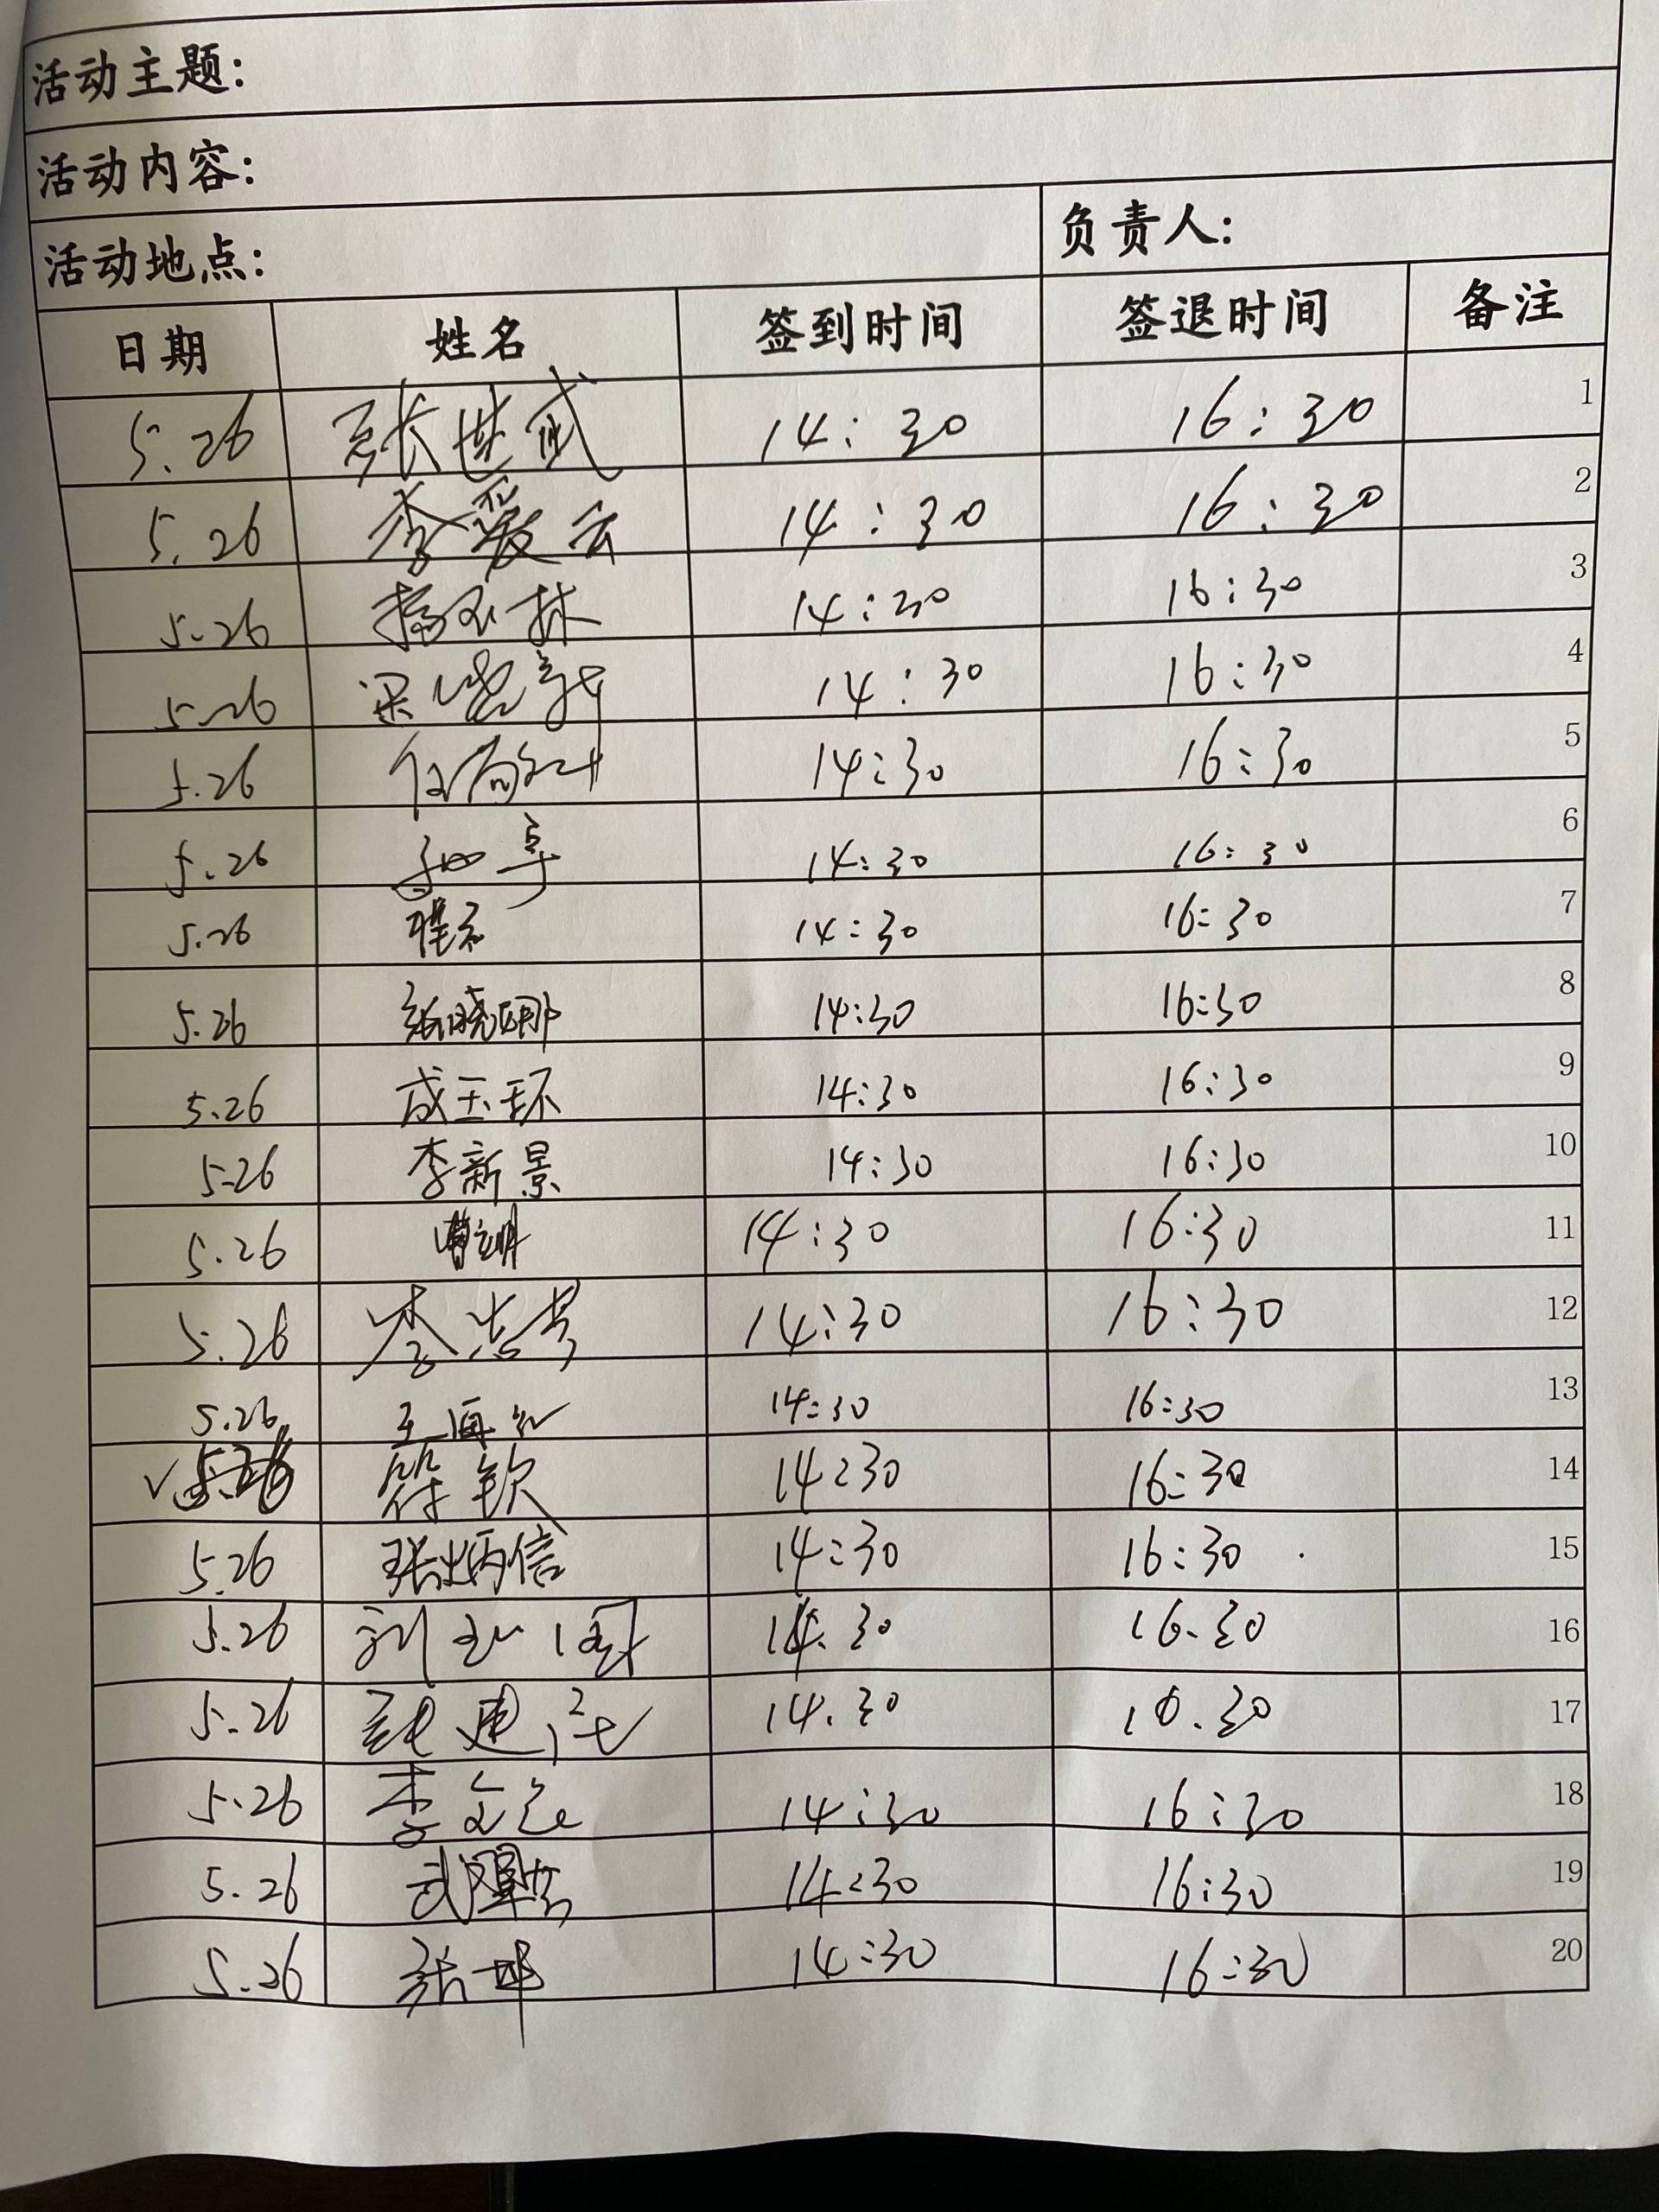 活动主题:
活动内容:
活动地点: 负责人:
日期 姓名 签到时间 签退时间 备注
5.26 张世武 14:30 16:30 1
5.26 李爱云 14:30 16:30 2
5.26 14:30 16:30 3
5.26 14:30 16:30 4
5.26 14:30 16:30 5
5.26 14:30 16:30 6
5.26 14:30 16:30 7
5.26 张晓娜 14:30 16:30 8
5.26 成玉环 14:30 16:30 9
5.26 李新景 14:30 16:30 10
5.26 14:30 16:30 11
5.26 李 14:30 16:30 12
5.26 王 14:30 16:30 13
5.26 符钦 14:30 16:30 14
5.26 张炳信 14:30 16:30 15
5.26 刘 14.30 16.30 16
5.26 14.30 16.30 17
5.26 李 14:30 16:30 18
5.26 武 14:30 16:30 19
5.26 张坤 14:30 16:30 20